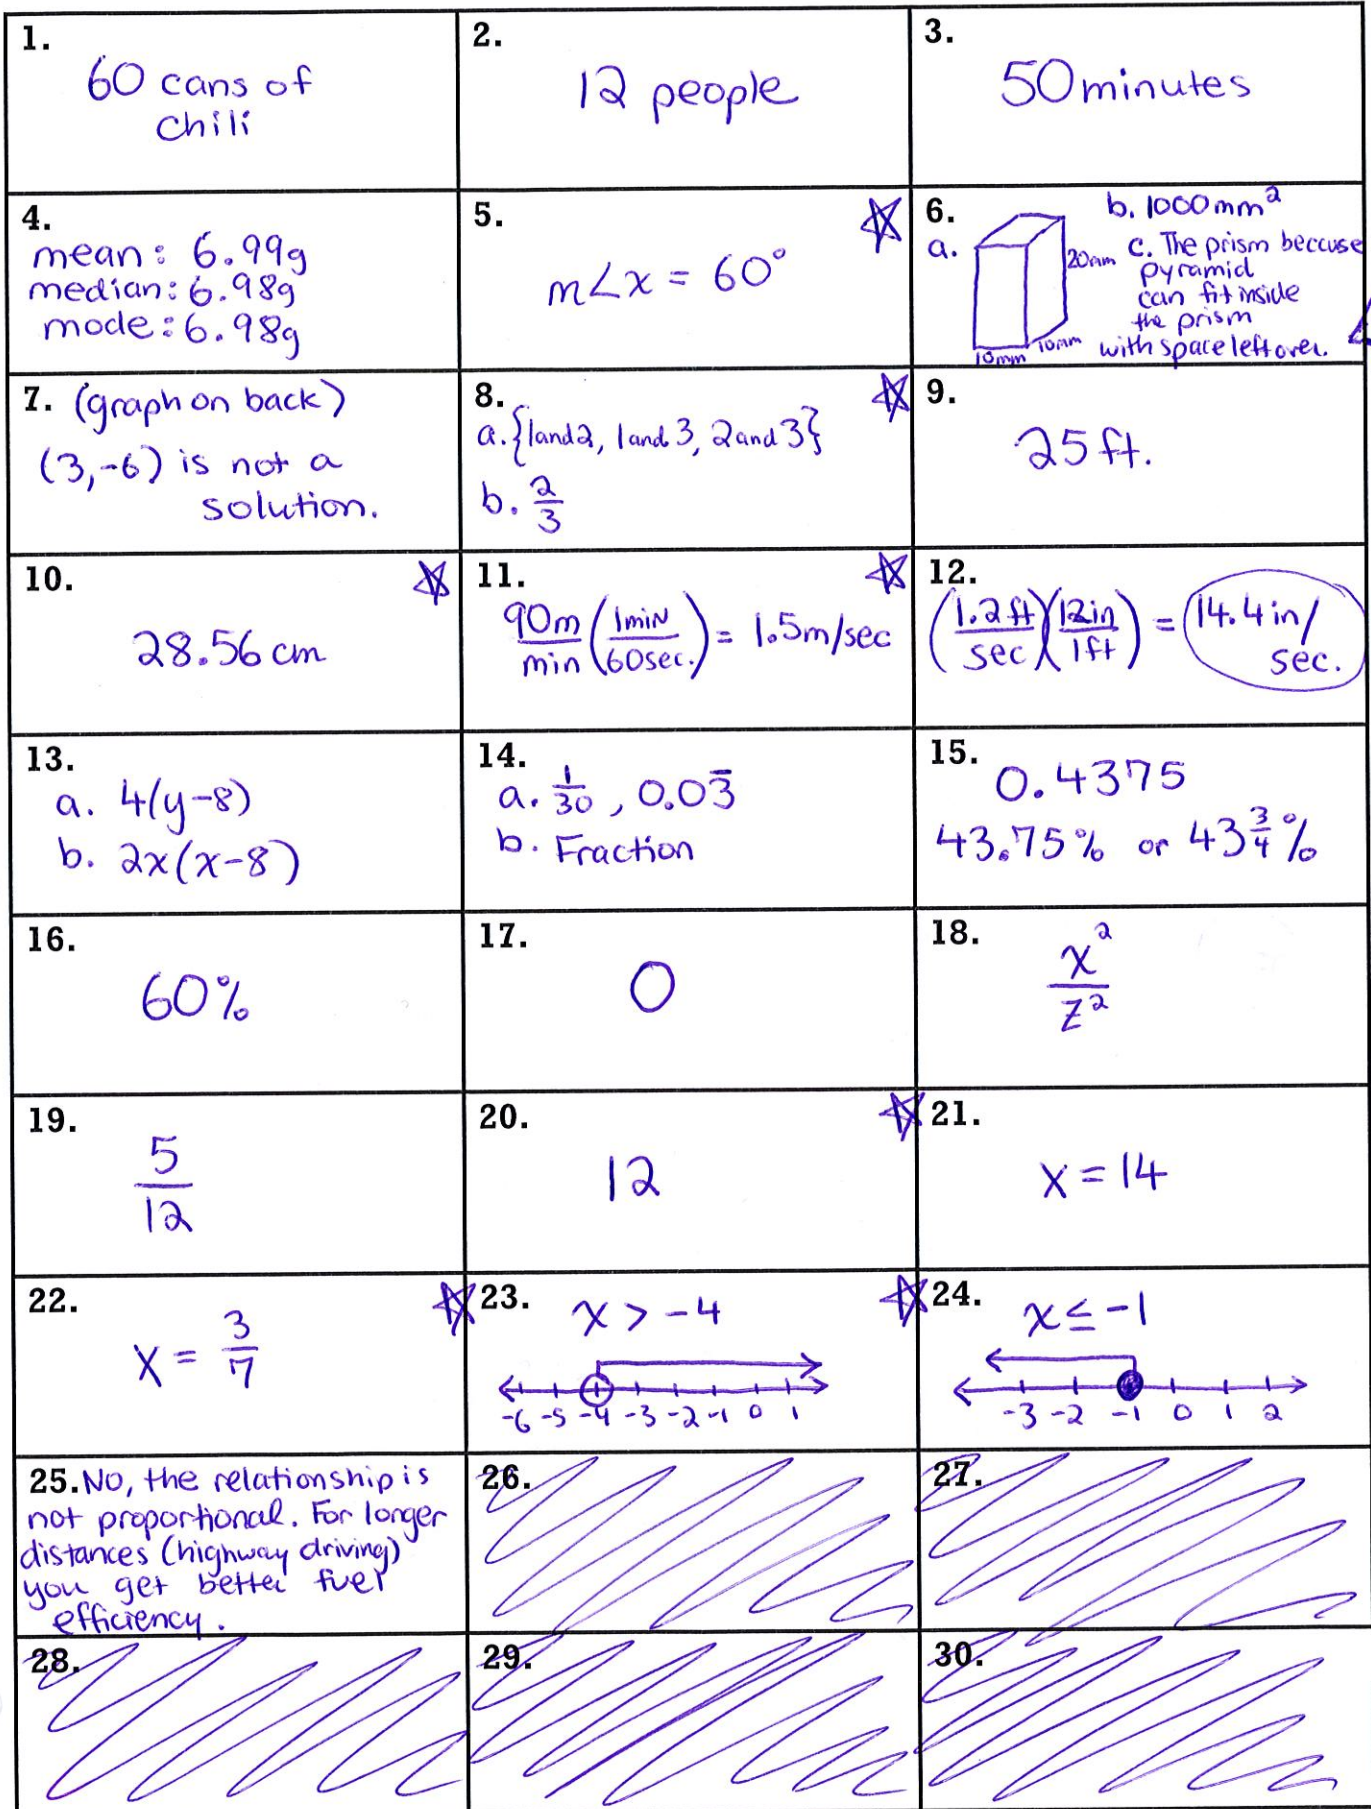 1.
60 cans of
chili
2.
12 people
3.
50 minutes
4.
mean: 6.99g
median: 6.98g
mode: 6.98g
5.
m∠x = 60°
6.
a.
20mm
10mm
10mm
b. 1000mm²
c. The prism because
pyramid
can fit inside
the prism
with space left over.
7. (graph on back)
(3,-6) is not a
solution.
8.
a. {1and2, 1and 3, 2and3}
b. 2/3
9.
25 ft.
10.
28.56 cm
11.
90m/min (1min/60sec.) = 1.5m/sec
12.
(1.2ft/sec)(12in/1ft) = 14.4in/
sec.
13.
a. 4(y-8)
b. 2x(x-8)
14.
a. 1/30, 0.03̅
b. Fraction
15.
0.4375
43.75% or 43 3/4 %
16.
60%
17.
0
18.
x²/z²
19.
5/12
20.
12
21.
x = 14
22.
x = 3/7
23. x > -4
-6 -5 -4 -3 -2 -1 0 1
24. x ≤ -1
-3 -2 -1 0 1 2
25. No, the relationship is
not proportional. For longer
distances (highway driving)
you get better fuel
efficiency.
26.
27.
28.
29.
30.